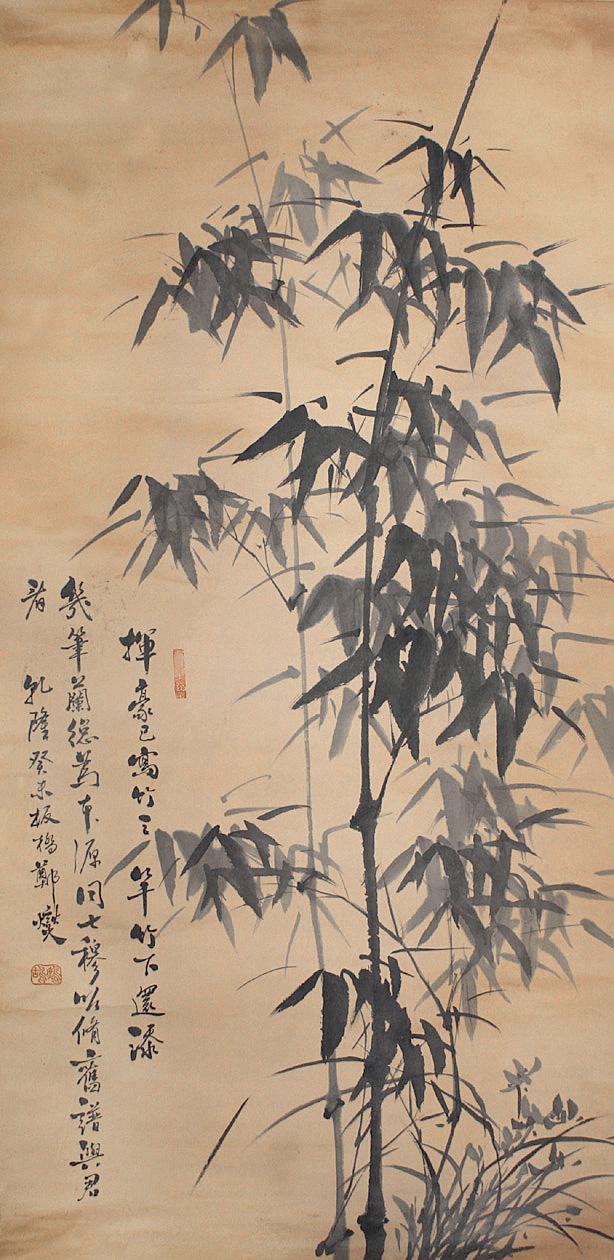 揮豪已寫竹三竿竹下還添
幾筆蘭總為本源同七穆欲脩舊譜與君
看 乾隆癸未板橋鄭燮